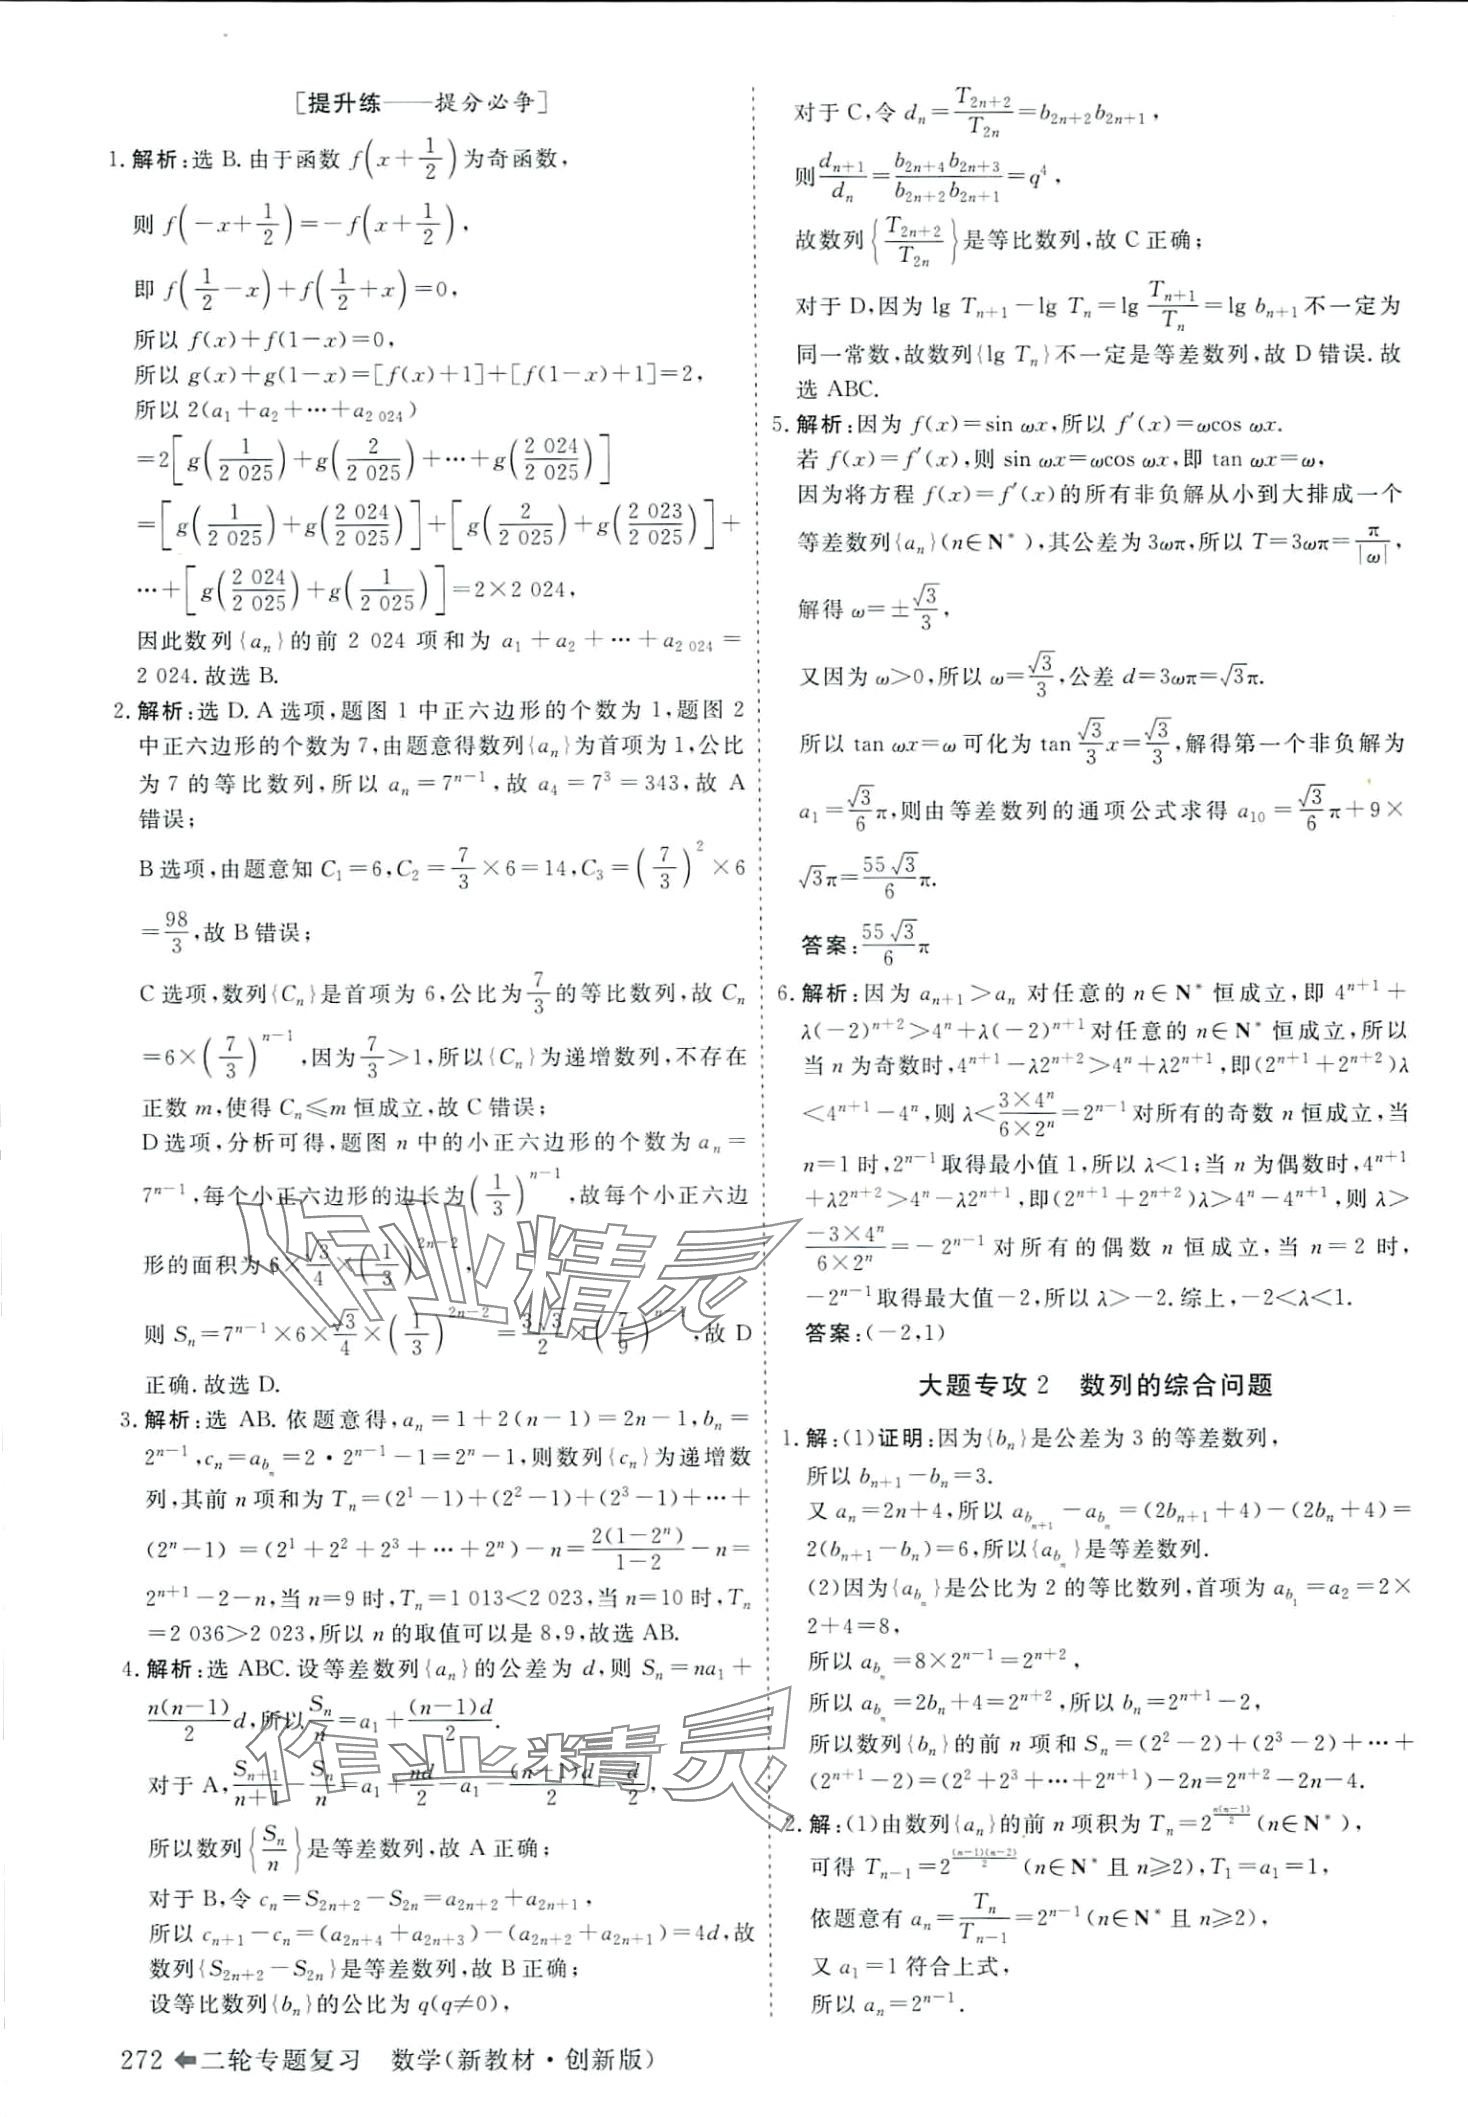 [提升练——提分必争]
1.解析:选 B.由于函数 f(x+1/2)为奇函数,
则 f(−x+1/2)=−f(x+1/2),
即 f(1/2−x)+f(1/2+x)=0,
所以 f(x)+f(1−x)=0,
所以 g(x)+g(1−x)=[f(x)+1]+[f(1−x)+1]=2,
所以 2(a₁+a₂+⋯+a₂ ₀₂₄)
=2[g(1/2 025)+g(2/2 025)+⋯+g(2 024/2 025)]
=[g(1/2 025)+g(2 024/2 025)]+[g(2/2 025)+g(2 023/2 025)]+
⋯+[g(2 024/2 025)+g(1/2 025)]=2×2 024,
因此数列{aₙ}的前 2 024 项和为 a₁+a₂+⋯+a₂ ₀₂₄=
2 024.故选 B.
2.解析:选 D.A 选项,题图 1 中正六边形的个数为 1,题图 2
中正六边形的个数为 7,由题意得数列{aₙ}为首项为 1,公比
为 7 的等比数列,所以 aₙ=7ⁿ⁻¹,故 a₄=7³=343,故 A
错误;
B 选项,由题意知 C₁=6,C₂=7/3×6=14,C₃=(7/3)²×6
=98/3,故 B 错误;
C 选项,数列{Cₙ}是首项为 6,公比为7/3的等比数列,故 Cₙ
=6×(7/3)ⁿ⁻¹,因为7/3>1,所以{Cₙ}为递增数列,不存在
正数 m,使得 Cₙ≤m 恒成立,故 C 错误;
D 选项,分析可得,题图 n 中的小正六边形的个数为 aₙ=
7ⁿ⁻¹,每个小正六边形的边长为(1/3)ⁿ⁻¹,故每个小正六边
形的面积为 6×√3/4×(1/3)²ⁿ⁻²,
则 Sₙ=7ⁿ⁻¹×6×√3/4×(1/3)²ⁿ⁻²=3√3/2×(7/9)ⁿ⁻¹,故 D
正确.故选 D.
3.解析:选 AB.依题意得,aₙ=1+2(n−1)=2n−1,bₙ=
2ⁿ⁻¹,cₙ=a_{bₙ}=2·2ⁿ⁻¹−1=2ⁿ−1,则数列{cₙ}为递增数
列,其前 n 项和为 Tₙ=(2¹−1)+(2²−1)+(2³−1)+⋯+
(2ⁿ−1)=(2¹+2²+2³+⋯+2ⁿ)−n=2(1−2ⁿ)/(1−2)−n=
2ⁿ⁺¹−2−n,当 n=9 时,Tₙ=1 013<2 023,当 n=10 时,Tₙ
=2 036>2 023,所以 n 的取值可以是 8,9,故选 AB.
4.解析:选 ABC.设等差数列{aₙ}的公差为 d,则 Sₙ=na₁+
n(n−1)/2 d,所以Sₙ/n=a₁+(n−1)d/2.
对于 A,Sₙ₊₁/(n+1)−Sₙ/n=a₁+nd/2−a₁−(n+1)d/2=d/2,
所以数列{Sₙ/n}是等差数列,故 A 正确;
对于 B,令 cₙ=S₂ₙ₊₂−S₂ₙ=a₂ₙ₊₂+a₂ₙ₊₁,
所以 cₙ₊₁−cₙ=(a₂ₙ₊₄+a₂ₙ₊₃)−(a₂ₙ₊₂+a₂ₙ₊₁)=4d,故
数列{S₂ₙ₊₂−S₂ₙ}是等差数列,故 B 正确;
设等比数列{bₙ}的公比为 q(q≠0),
对于 C,令 dₙ=T₂ₙ₊₂/T₂ₙ=b₂ₙ₊₂b₂ₙ₊₁,
则dₙ₊₁/dₙ=b₂ₙ₊₄b₂ₙ₊₃/b₂ₙ₊₂b₂ₙ₊₁=q⁴,
故数列{T₂ₙ₊₂/T₂ₙ}是等比数列,故 C 正确;
对于 D,因为 lg Tₙ₊₁−lg Tₙ=lg Tₙ₊₁/Tₙ=lg bₙ₊₁不一定为
同一常数,故数列{lg Tₙ}不一定是等差数列,故 D 错误.故
选 ABC.
5.解析:因为 f(x)=sin ωx,所以 f′(x)=ωcos ωx.
若 f(x)=f′(x),则 sin ωx=ωcos ωx,即 tan ωx=ω,
因为将方程 f(x)=f′(x)的所有非负解从小到大排成一个
等差数列{aₙ}(n∈N*),其公差为 3ωπ,所以 T=3ωπ=π/|ω|,
解得 ω=±√3/3,
又因为 ω>0,所以 ω=√3/3,公差 d=3ωπ=√3π.
所以 tan ωx=ω 可化为 tan √3/3 x=√3/3,解得第一个非负解为
a₁=√3/6 π,则由等差数列的通项公式求得 a₁₀=√3/6 π+9×
√3π=55√3/6 π.
答案:55√3/6 π
6.解析:因为 aₙ₊₁>aₙ 对任意的 n∈N* 恒成立,即 4ⁿ⁺¹+
λ(−2)ⁿ⁺²>4ⁿ+λ(−2)ⁿ⁺¹对任意的 n∈N* 恒成立,所以
当 n 为奇数时,4ⁿ⁺¹−λ2ⁿ⁺²>4ⁿ+λ2ⁿ⁺¹,即(2ⁿ⁺¹+2ⁿ⁺²)λ
<4ⁿ⁺¹−4ⁿ,则 λ<3×4ⁿ/6×2ⁿ=2ⁿ⁻¹对所有的奇数 n 恒成立,当
n=1 时,2ⁿ⁻¹取得最小值 1,所以 λ<1;当 n 为偶数时,4ⁿ⁺¹
+λ2ⁿ⁺²>4ⁿ−λ2ⁿ⁺¹,即(2ⁿ⁺¹+2ⁿ⁺²)λ>4ⁿ−4ⁿ⁺¹,则 λ>
−3×4ⁿ/6×2ⁿ=−2ⁿ⁻¹对所有的偶数 n 恒成立,当 n=2 时,
−2ⁿ⁻¹取得最大值−2,所以 λ>−2.综上,−2<λ<1.
答案:(−2,1)
大题专攻 2 数列的综合问题
1.解:(1)证明:因为{bₙ}是公差为 3 的等差数列,
所以 bₙ₊₁−bₙ=3.
又 aₙ=2n+4,所以 a_{bₙ₊₁}−a_{bₙ}=(2bₙ₊₁+4)−(2bₙ+4)=
2(bₙ₊₁−bₙ)=6,所以{a_{bₙ}}是等差数列.
(2)因为{a_{bₙ}}是公比为 2 的等比数列,首项为 a_{b₁}=a₂=2×
2+4=8,
所以 a_{bₙ}=8×2ⁿ⁻¹=2ⁿ⁺²,
所以 a_{bₙ}=2bₙ+4=2ⁿ⁺²,所以 bₙ=2ⁿ⁺¹−2,
所以数列{bₙ}的前 n 项和 Sₙ=(2²−2)+(2³−2)+⋯+
(2ⁿ⁺¹−2)=(2²+2³+⋯+2ⁿ⁺¹)−2n=2ⁿ⁺²−2n−4.
2.解:(1)由数列{aₙ}的前 n 项积为 Tₙ=2^{n(n−1)/2}(n∈N*),
可得 Tₙ₋₁=2^{(n−1)(n−2)/2}(n∈N* 且 n≥2),T₁=a₁=1,
依题意有 aₙ=Tₙ/Tₙ₋₁=2ⁿ⁻¹(n∈N* 且 n≥2),
又 a₁=1 符合上式,
所以 aₙ=2ⁿ⁻¹.
272 ⬅二轮专题复习 数学(新教材·创新版)
作业精灵
作业精灵